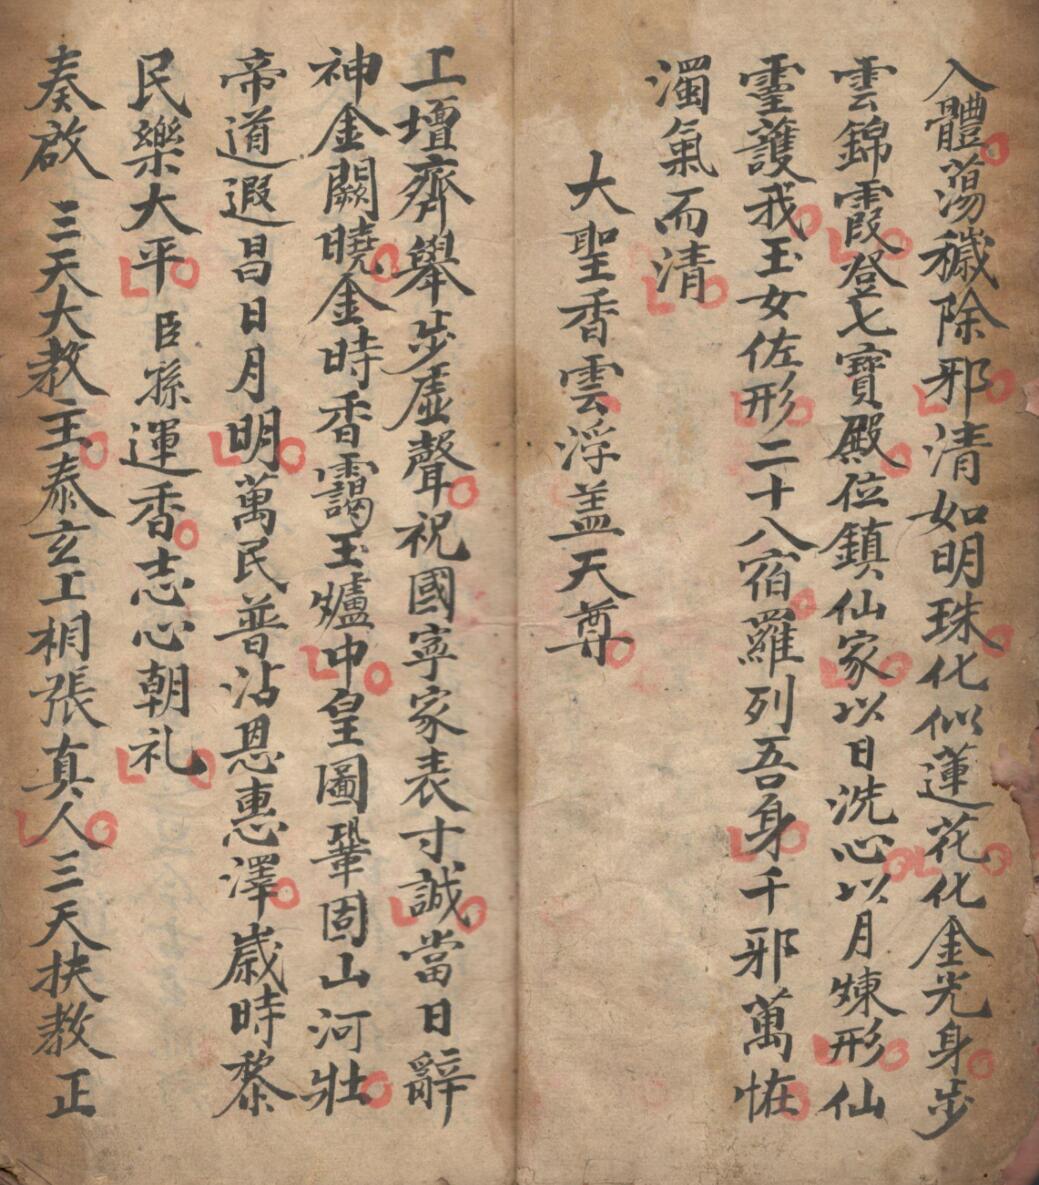 入體蕩穢除邪清如明珠化似蓮花化金光身步
雲錦霞登七寶殿位鎮仙家以日洗心以月煉形仙
靈護我玉女佐形二十八宿羅列吾身千邪萬恠
濁氣而清
大聖香雲浮盖天尊
上壇齊舉步虛聲祝國寧家表寸誠當日辭
神金闕曉金時香靄玉爐中皇圖鞏固山河壯
帝道遐昌日月明萬民普沾恩惠澤歲時黎
民樂大平臣孫運香志心朝礼
奏啟三天大教主泰玄上相張真人三天扶教正